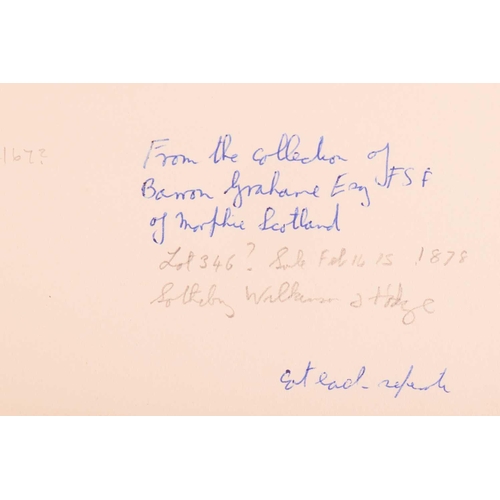 167?
From the collection of
Barron Grahame Esq FSF
of Morphie Scotland
Lot 346? Sale Feb 1878
Sotheby Wilkinson & Hodge